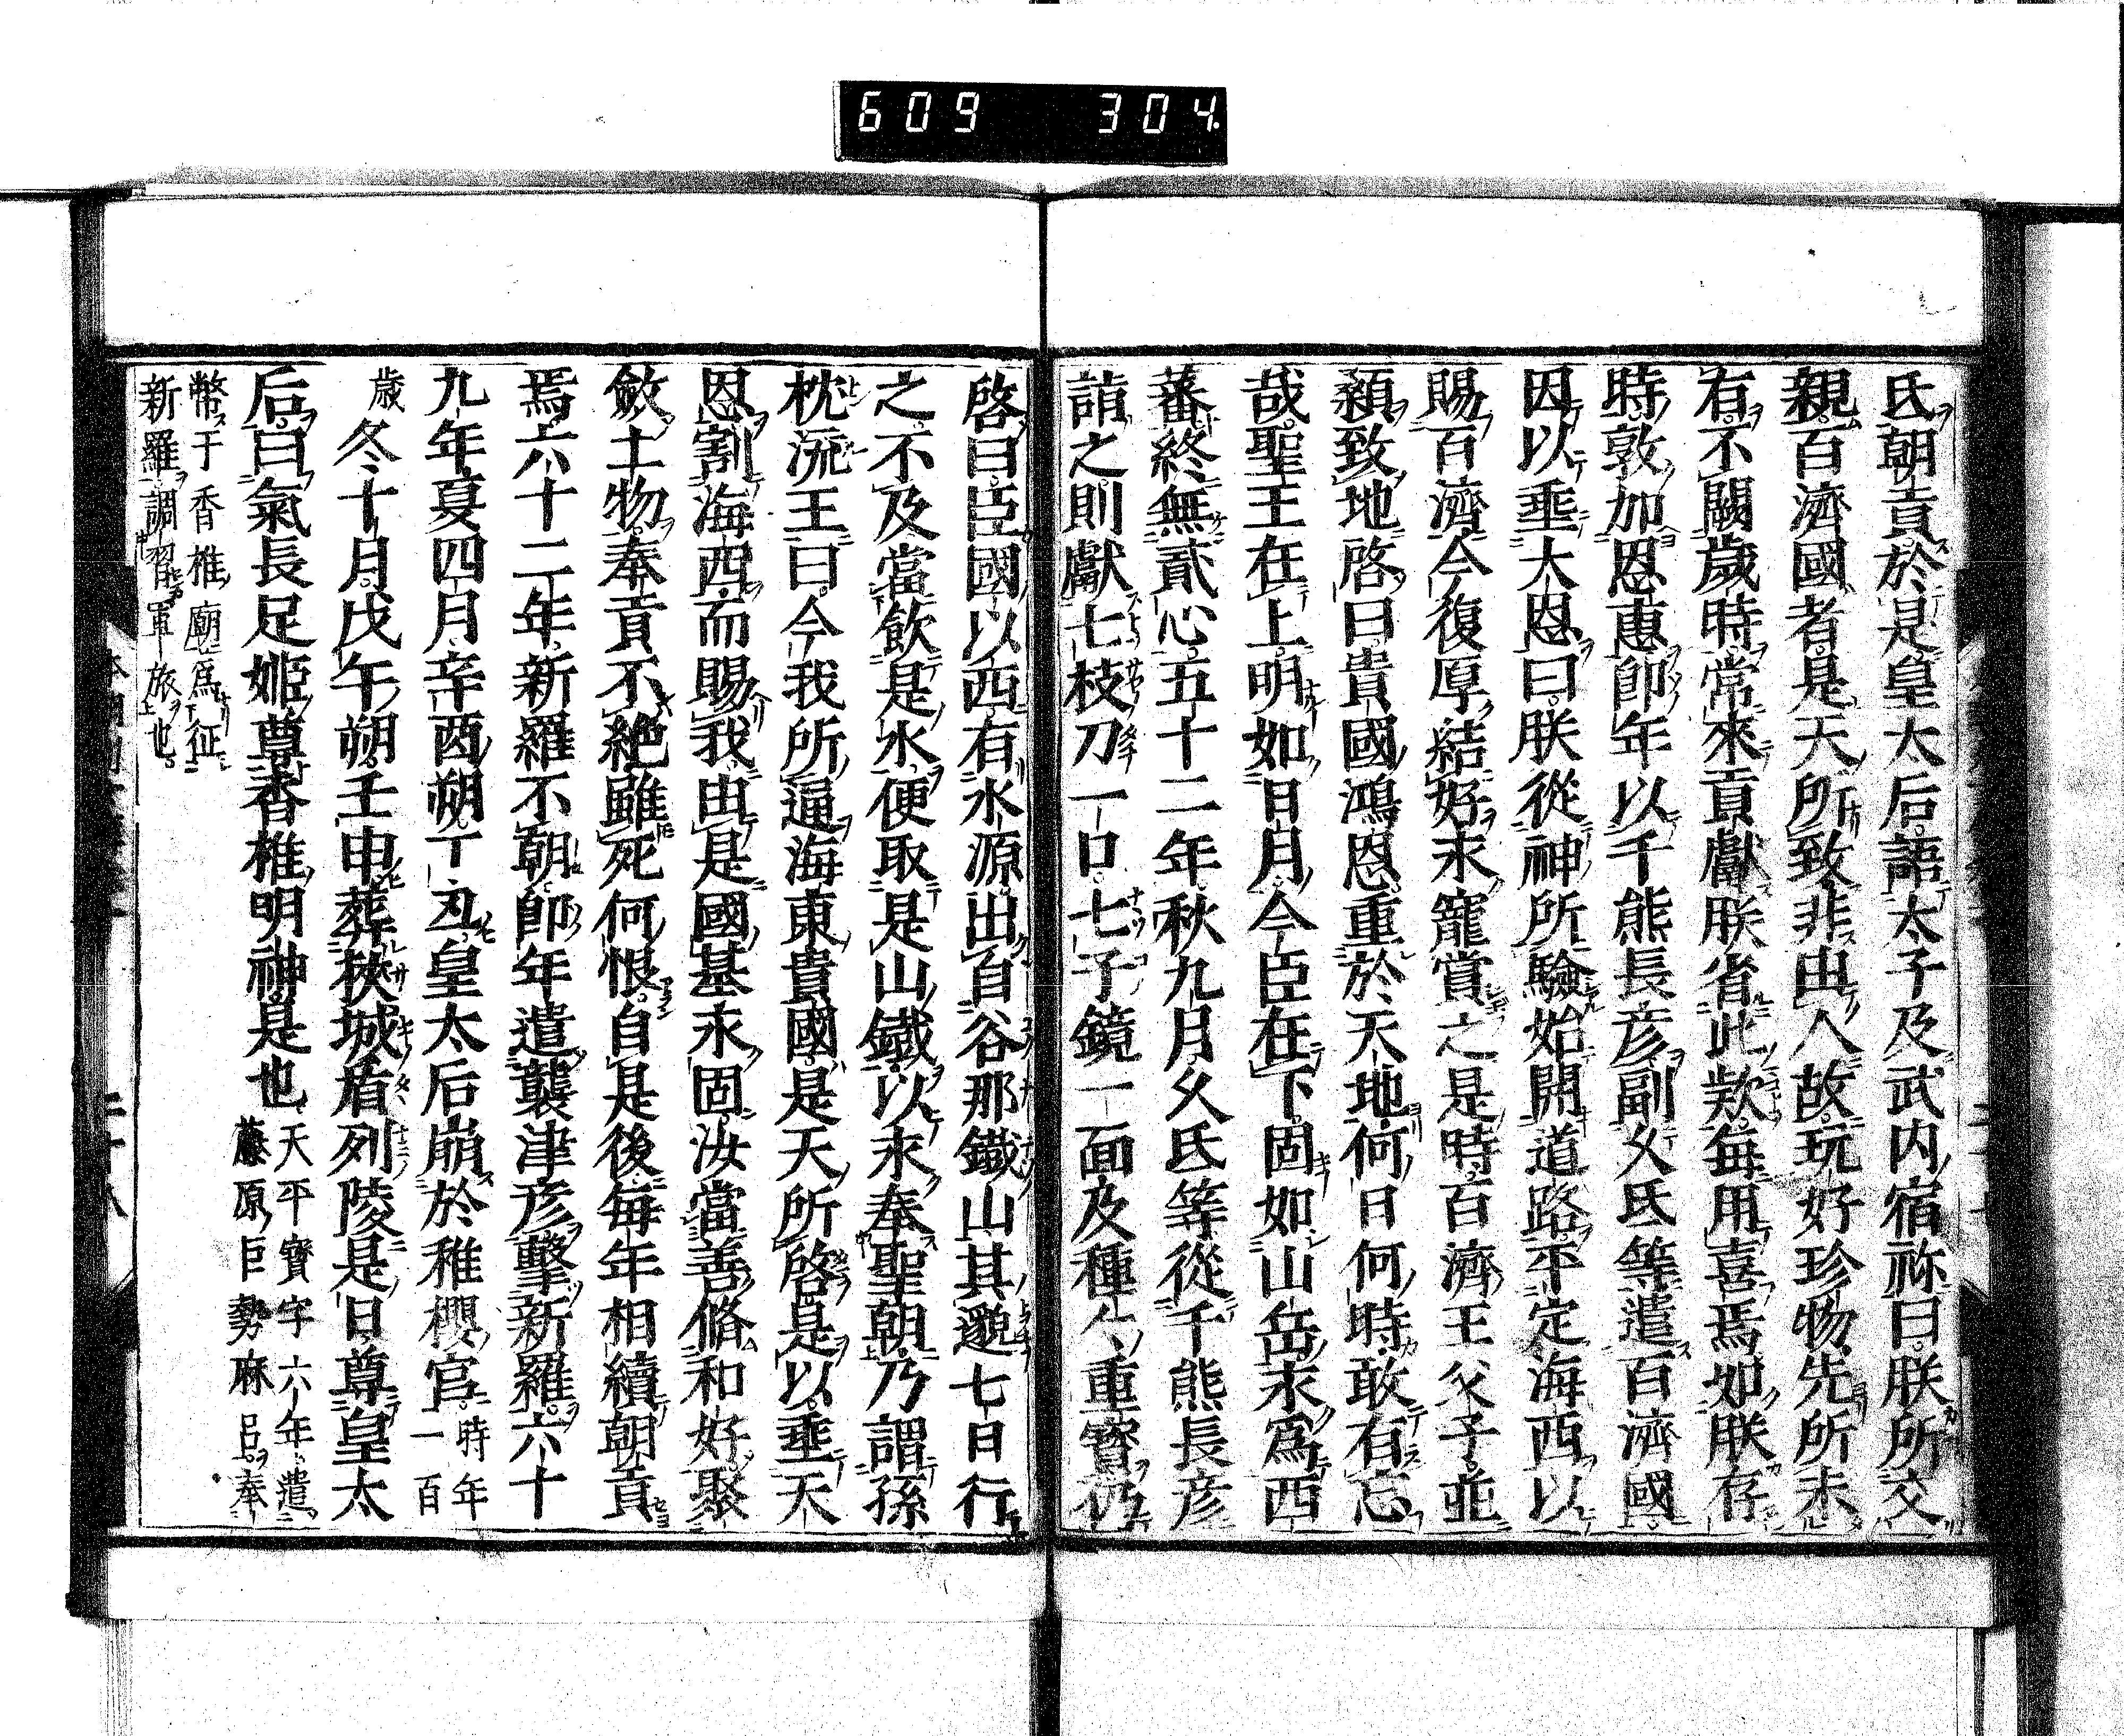 609 304
氏朝貢於是皇太后語太子及武内宿祢曰朕所交
親百濟國者是天所致非由人故玩好珍物先所未
有不闕歲時常來貢獻朕省此欵毎用喜焉如朕存
時敦加恩惠即年以千熊長彦副久氏等遣百濟國
因以垂大恩曰朕從神所驗始開道路平定海西以
賜百濟今復厚結好永寵賞之是時百濟王父子並
顙致地啓曰貴國鴻恩重於天地何日何時敢有忘
哉聖王在上明如日月今臣在下固如山岳永爲西
蕃終無貳心五十二年秋九月久氏等從千熊長彦
詣之則獻七枝刀一口七子鏡一面及種〻重寶仍
啓曰臣國以西有水源出自谷那鐵山其邈七日行
之不及當飲是水便取是山鐵以永奉聖朝乃謂孫
枕流王曰今我所通海東貴國是天所啓是以垂天
恩割海西而賜我由是國基永固汝當善脩和好聚
斂土物奉貢不絶雖死何恨自是後毎年相續朝貢
焉六十二年新羅不朝即年遣襲津彦擊新羅六十
九年夏四月辛酉朔丁丑皇太后崩於稚櫻宮時年一百
歲冬十月戊午朔壬申葬挾城盾列陵是日尊皇太
后曰氣長足姫尊香椎明神是也天平寶字六年遣藤原巨勢麻呂奉
幣于香椎廟爲征
新羅調習軍旅也